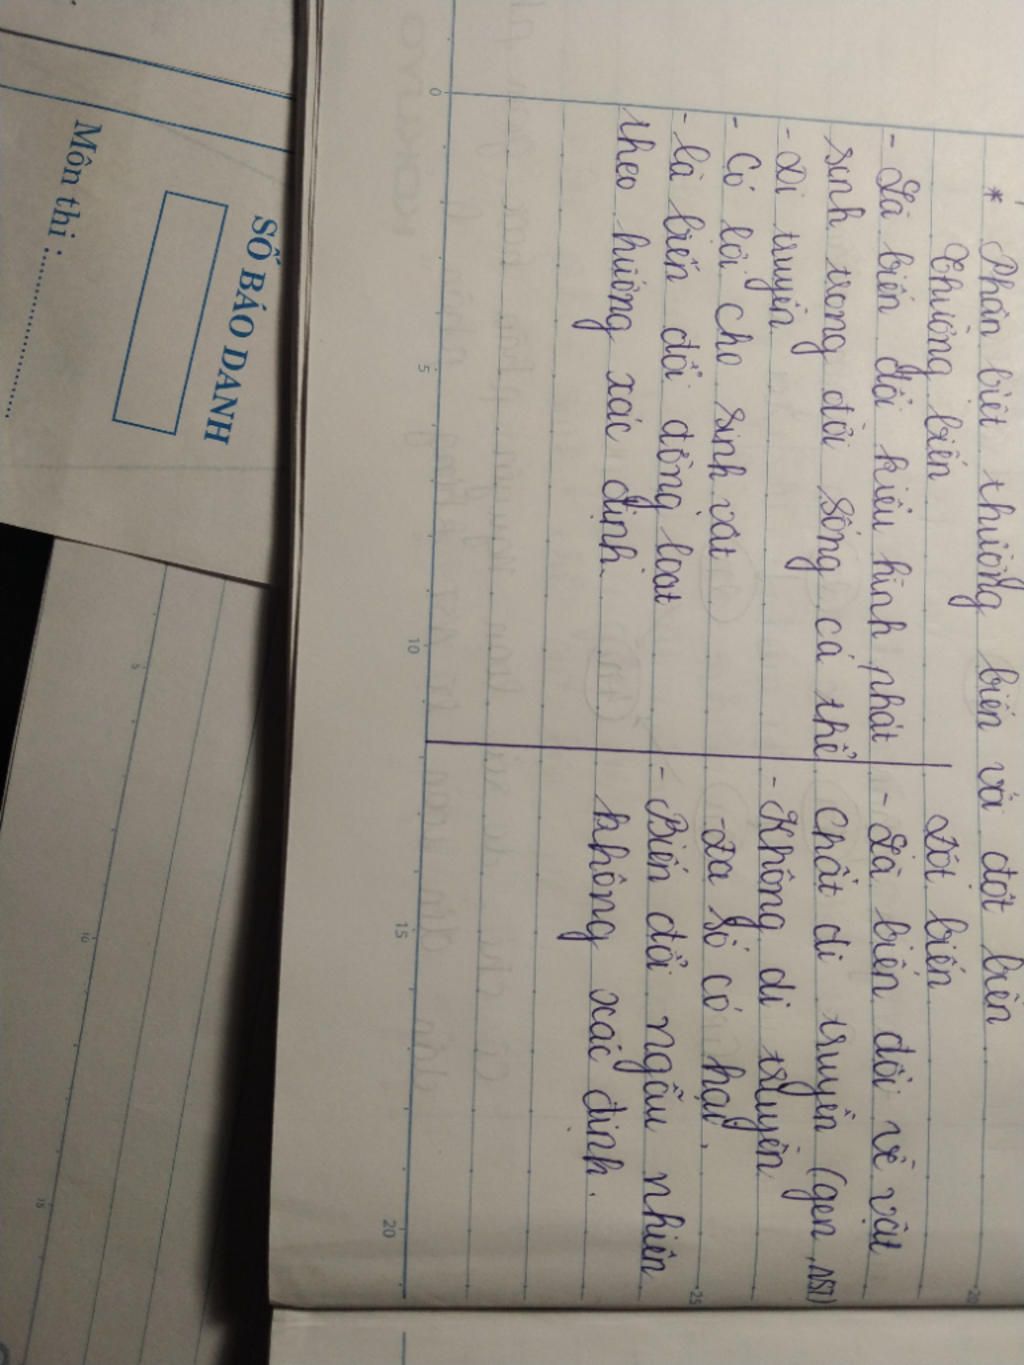 * Phân biệt thường biến và đột biến
Thường biến
Đột biến
- Là biến đổi kiểu hình phát
sinh trong đời sống cá thể
- Di truyền
- Có lợi cho sinh vật
- là biến đổi đồng loạt
theo hướng xác định.
- Là biến đổi về vật
chất di truyền (gen, NST)
- Không di truyền
- Đa số có hại.
- Biến đổi ngẫu nhiên
không xác định.
SỐ BÁO DANH
Môn thi :
0
5
10
15
20
20
25
5
10
15